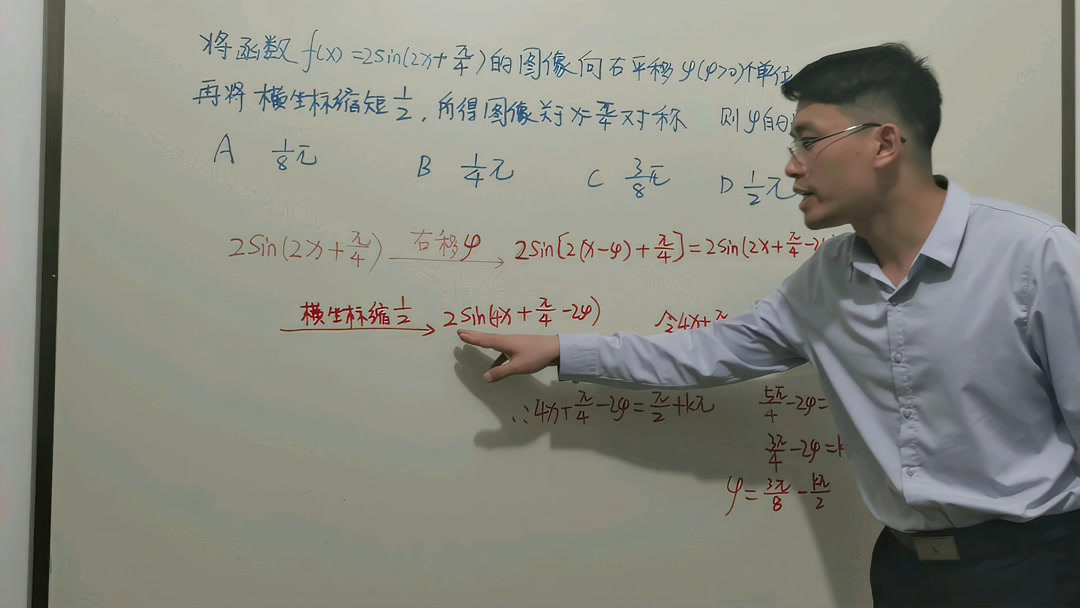 将函数 f(x)=2sin(2x+π/4)的图像向右平移φ(φ>0)个单位
再将 横坐标缩短1/2,所得图像关于x=π/4对称 则φ的
A 1/8π B 1/4π C 3/8π D 1/2π
2sin(2x+π/4) 右移φ 2sin[2(x-φ)+π/4]=2sin(2x+π/4-2
横坐标缩1/2 2sin(4x+π/4-2φ) 令4x+π
∴4x+π/4-2φ=π/2+kπ 5π/4-2φ=
3π/4-2φ=k
φ=3π/8-kπ/2